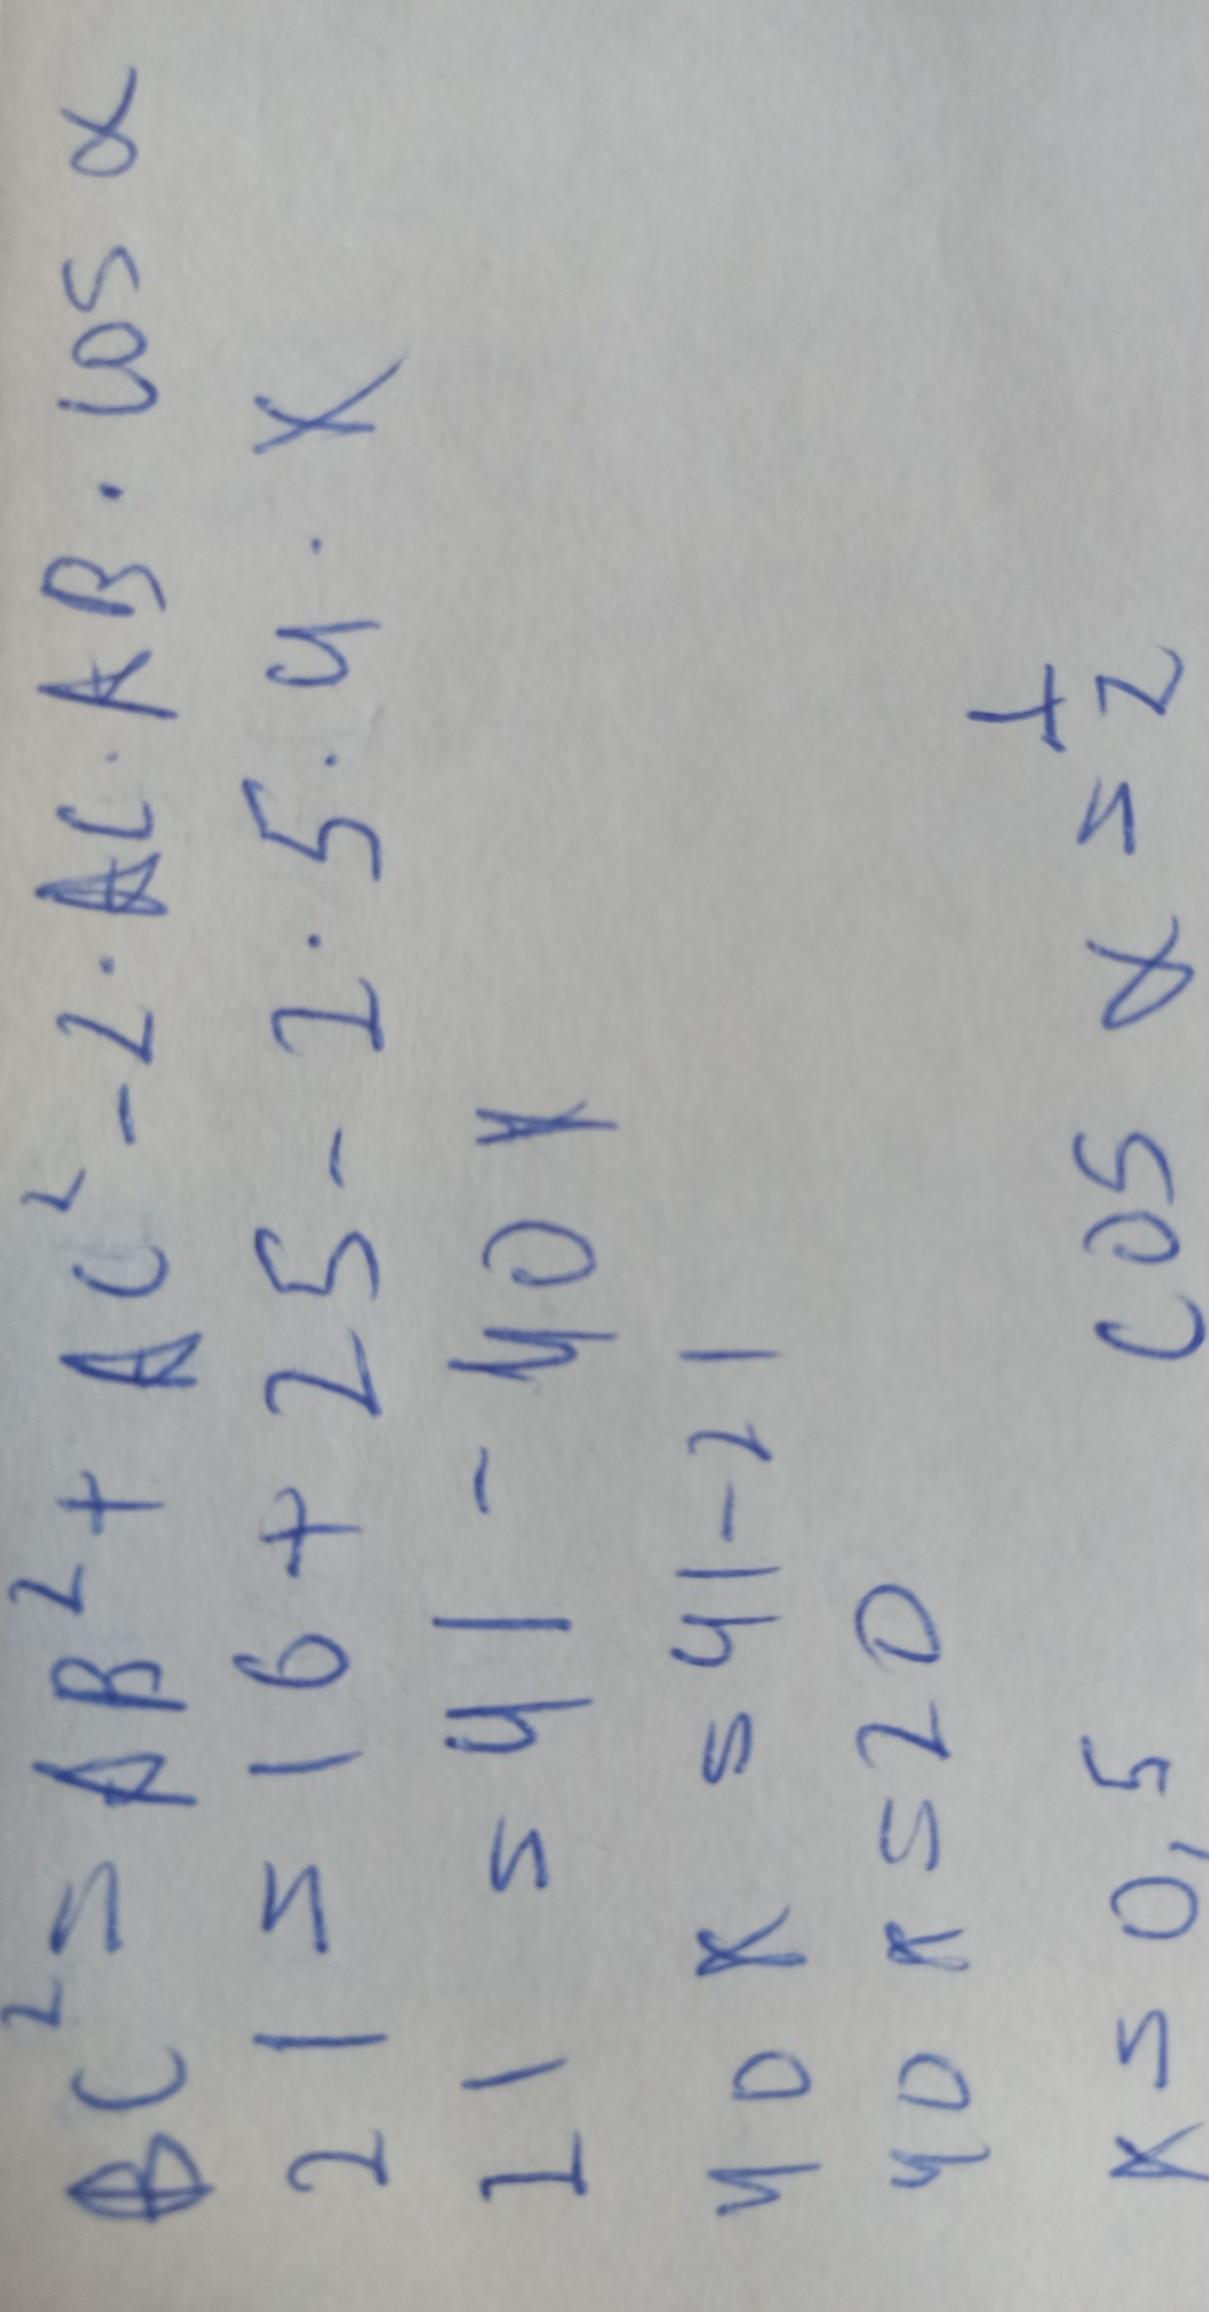 BC² = AB² + AC² - 2 · AC · AB · cos α
21 = 16 + 25 - 2 · 5 · 4 · x
21 = 41 - 40x
40x = 41 - 21
40x = 20
x = 0,5 cos α = 1/2